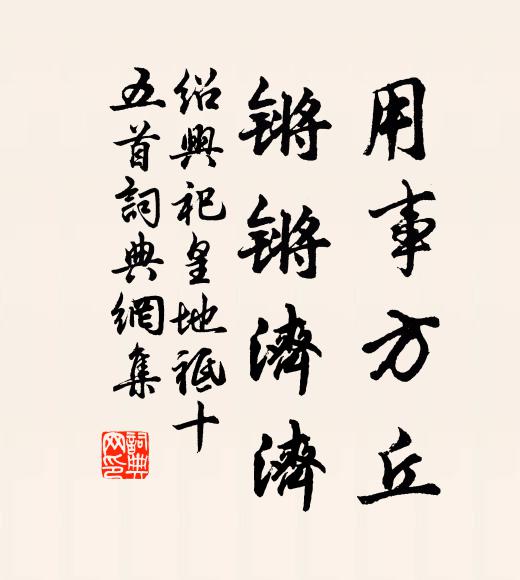 用事方丘
锵锵濟濟
绍興祀皇地祗十
五首詞典網集
詞典网印